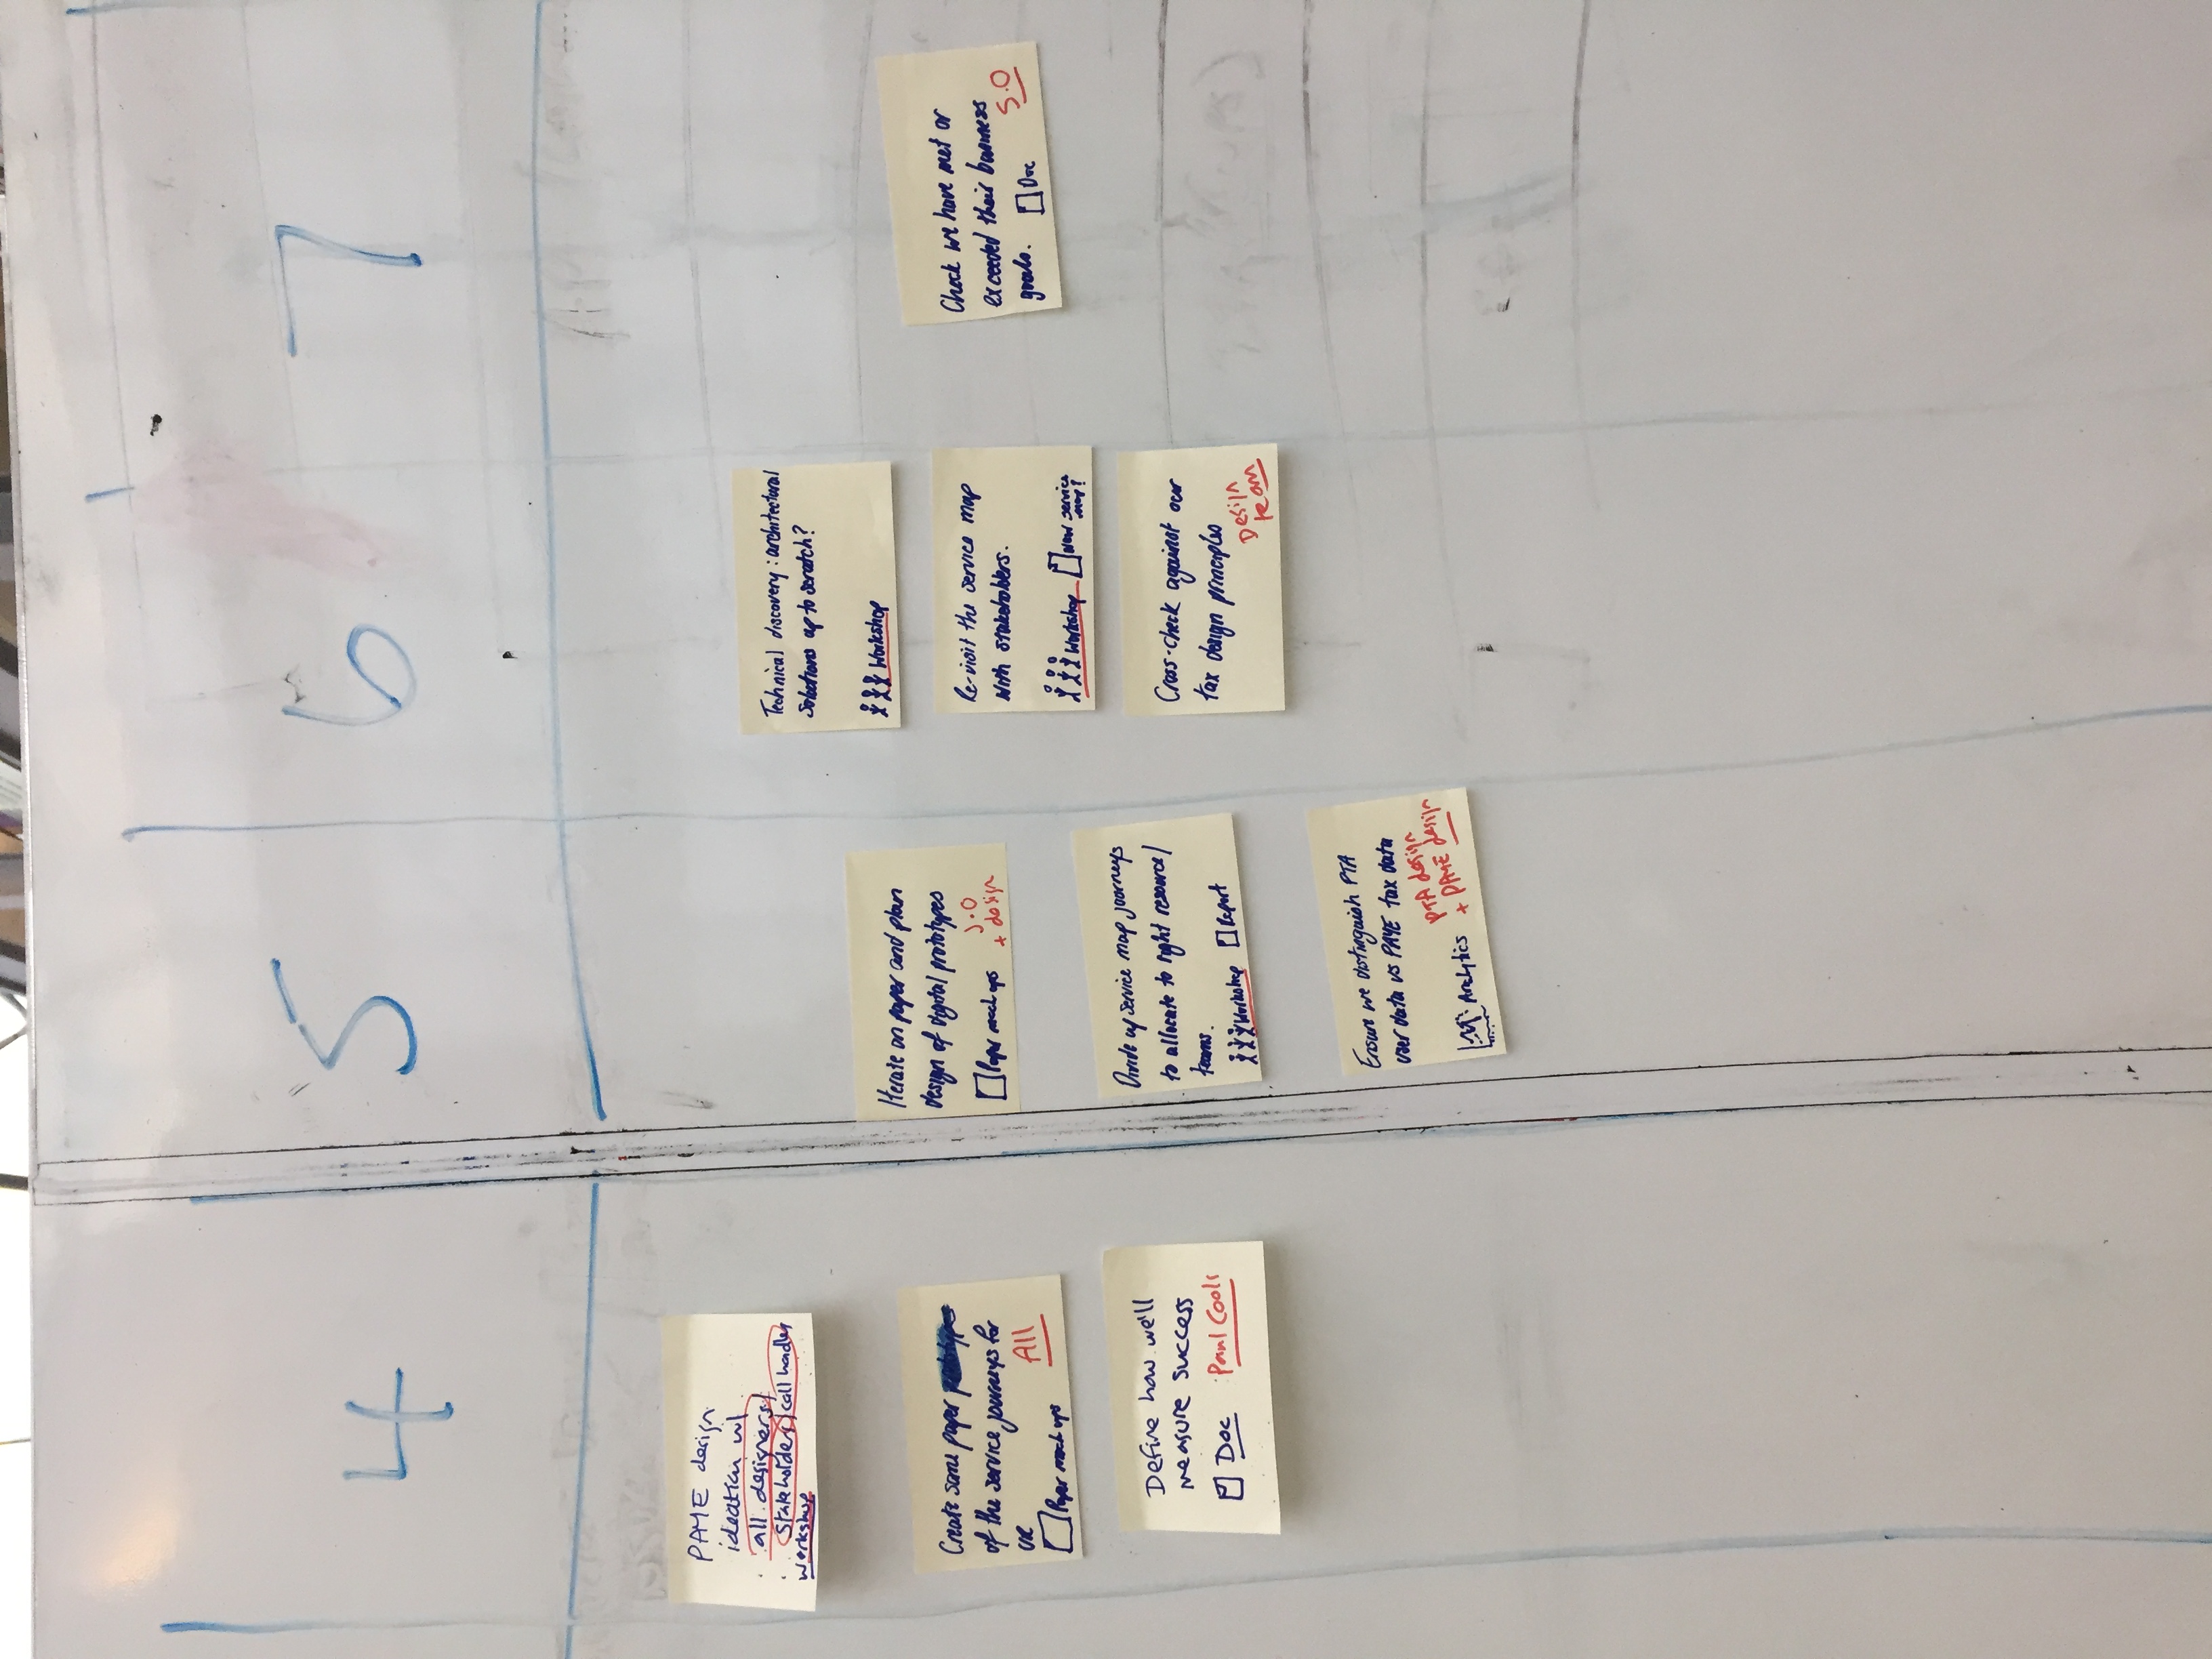 4
5
6
7
PAYE design
ideation w/
all designers/
stakeholders/call handler
workshop
Create some paper
of the service journeys for
UR
All
Paper mock ups
Define how we'll
measure success
Doc
Paul
Iterate on paper and plan
design of digital prototypes
Paper mock ups
+ design
Divide up service map journeys
to allocate to right resource/
teams.
Workshop Report
Ensure we distinguish PTA
user data vs PAYE tax data
PTA design
+ PAYE design
Analytics
Technical discovery: architectural
solutions up to scratch?
Workshop
Re-visit the service map
with stakeholders.
Workshop New service
map?
Cross-check against our
tax design principles
Design
team
Check we have met or
exceeded their business
goals. Doc
S.O